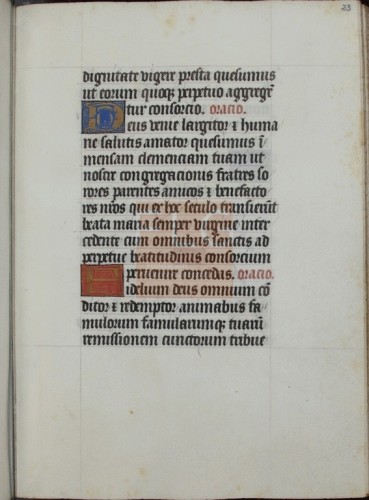 23
dignitate vigere presta quesumus
ut eorum quoqꝫ perpetuo aggregē
tur consorcio. oracio.
Deus venie largitor ⁊ huma
ne salutis amator quesumus ī
mensam clemenciam tuam ut
nostre congregacionis fratres so
rores parentes amicos ⁊ benefacto
res nr̄os qui ex hoc seculo transierūt
beata maria semper virgine inter
cedente cum omnibus sanctis ad
perpetue beatitudinis consorcium
pervenire concedas. oracio.
Fidelium deus omnium cō
ditor ⁊ redemptor animabus fa
mulorum famularumqꝫ tuarū
remissionem cunctorum tribue